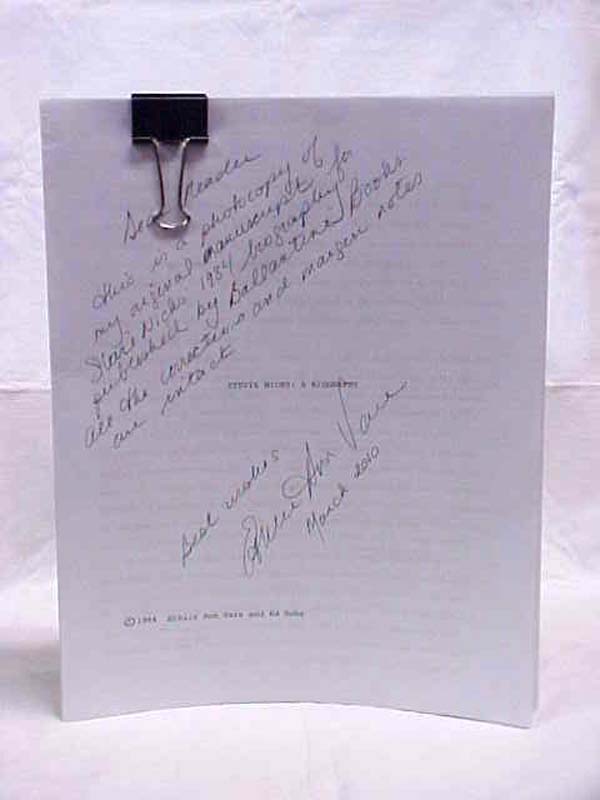 Dear Reader
This is a photocopy of
my original manuscript for
Stevie Nicks 1984 biography
published by Ballantine Books
all the corrections and margin notes
are intact
STEVIE NICKS: A BIOGRAPHY
Best wishes
Ann Vare
March 2010
©1984 Ann Vare and Ed